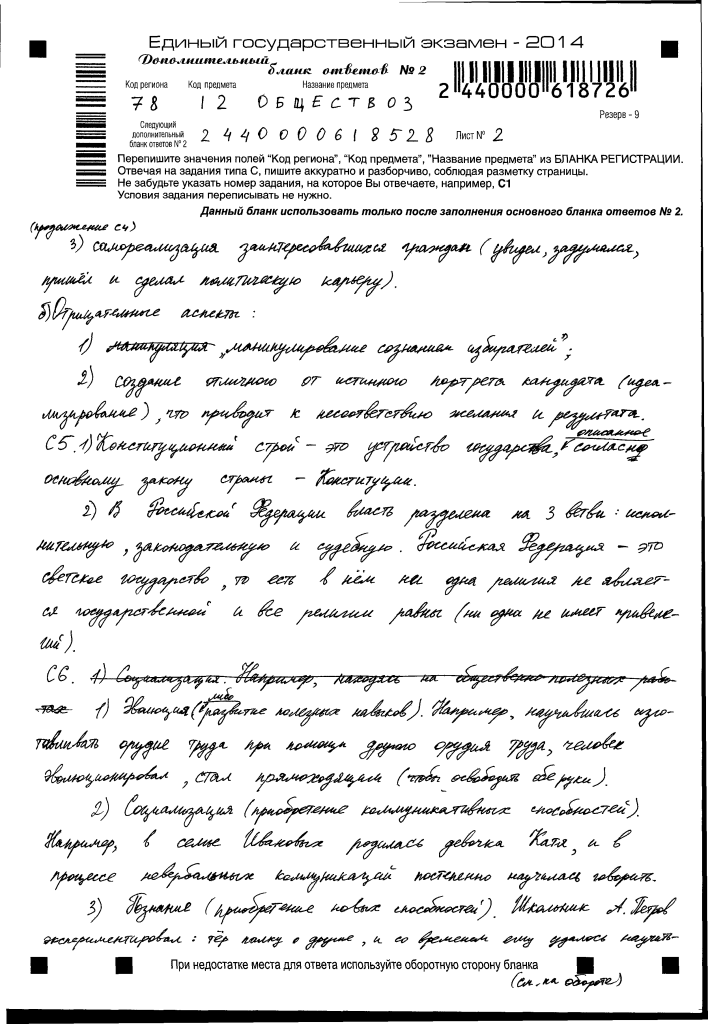 Единый государственный экзамен - 2014
Дополнительный
бланк ответов № 2
Код региона Код предмета Название предмета
78 12 ОБЩЕСТВОЗ
2 440000 618726
Резерв - 9
Следующий
дополнительный
бланк ответов № 2
2440000618528 Лист № 2
Перепишите значения полей "Код региона", "Код предмета", "Название предмета" из БЛАНКА РЕГИСТРАЦИИ.
Отвечая на задания типа С, пишите аккуратно и разборчиво, соблюдая разметку страницы.
Не забудьте указать номер задания, на которое Вы отвечаете, например, С1
Условия задания переписывать не нужно.
Данный бланк использовать только после заполнения основного бланка ответов № 2.
(продолжение С4)
3) самореализация заинтересовавшихся граждан (увидел, задумался,
пришёл и сделал политическую карьеру).
б) Отрицательные аспекты:
1) манипуляция „манипулирование сознанием избирателей";
2) создание отличного от истинного портрета кандидата (идеа-
лизирование), что приводит к несоответствию желания и результата.
С5. 1) Конституционный строй – это устройство государства, описанное согласно
основному закону страны – Конституции.
2) В Российской Федерации власть разделена на 3 ветви: испол-
нительную, законодательную и судебную. Российская Федерация – это
светское государство, то есть в нём ни одна религия не являет-
ся государственной и все религии равны (ни одна не имеет привеле-
гий).
С6. 1) Социализация. Например, находясь на общественно-полезных рабо-
тах 1) Эволюция (либо развитие полезных навыков). Например, научившись изго-
тавливать орудие труда при помощи другого орудия труда, человек
эволюционировал, стал прямоходящим (чтобы освободить обе руки).
2) Социализация (приобретение коммуникативных способностей).
Например, в семье Ивановых родилась девочка Катя, и в
процессе невербальных коммуникаций постепенно научилась говорить.
3) Познание (приобретение новых способностей). Школьник А. Петров
экспериментировал: тёр палку о другие, и со временем ему удалось научить-
При недостатке места для ответа используйте оборотную сторону бланка
(см. на обороте)